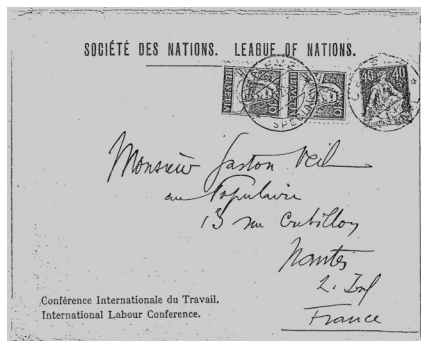 SOCIÉTÉ DES NATIONS. LEAGUE OF NATIONS.
HELVETIA
10
40 40
Monsieur Gaston Veil
au Populaire
13 rue Crébillon
Nantes
L. Inf
France
Conférence Internationale du Travail.
International Labour Conference.